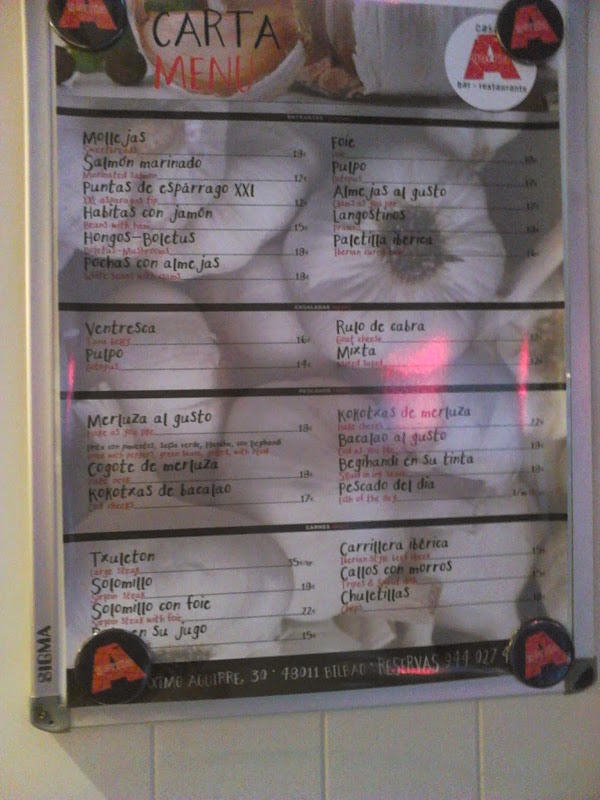 CARTA
MENU
bar - restaurante
Mollejas 18€
Sweetbreads
Salmón marinado 12€
Marinated salmon
Puntas de espárrago XXl 12€
XXL asparagus tip
Habitas con jamón 15€
Beans with ham
Hongos-Boletus 18€
Boletus-Mushrooms
Pochas con almejas 18€
White beans with clams
Foie
Pulpo
Octopus
Almejas al gusto
Clams as you like
Langostinos
Prawns
Paletilla ibérica
Iberian cured ham
ENSALADAS
Ventresca 16€
Tuna belly
Pulpo 14€
Octopus
Rulo de cabra
Goat cheese
Mixta
Mixed salad
PESCADOS
Merluza al gusto 18€
Hake as you like
Cogote de merluza 18€
Hake neck
Kokotxas de bacalao 17€
Cod cheeks
Kokotxas de merluza 22€
Hake cheeks
Bacalao al gusto 18€
Cod as you like
Begihandi en su tinta 18€
Squid in ink sauce
Pescado del día
Fish of the day
CARNES
Txuleton 35€
Large Steak
Solomillo 18€
Sirloin Steak
Solomillo con foie 22€
Sirloin Steak with foie
en su jugo 15€
Carrillera ibérica 15€
Iberian style beef cheek
Callos con morros 15€
Chuletillas 18€
Chops
AGUIRRE, 30 · 48011 BILBAO · RESERVAS 944 027
SIGMA